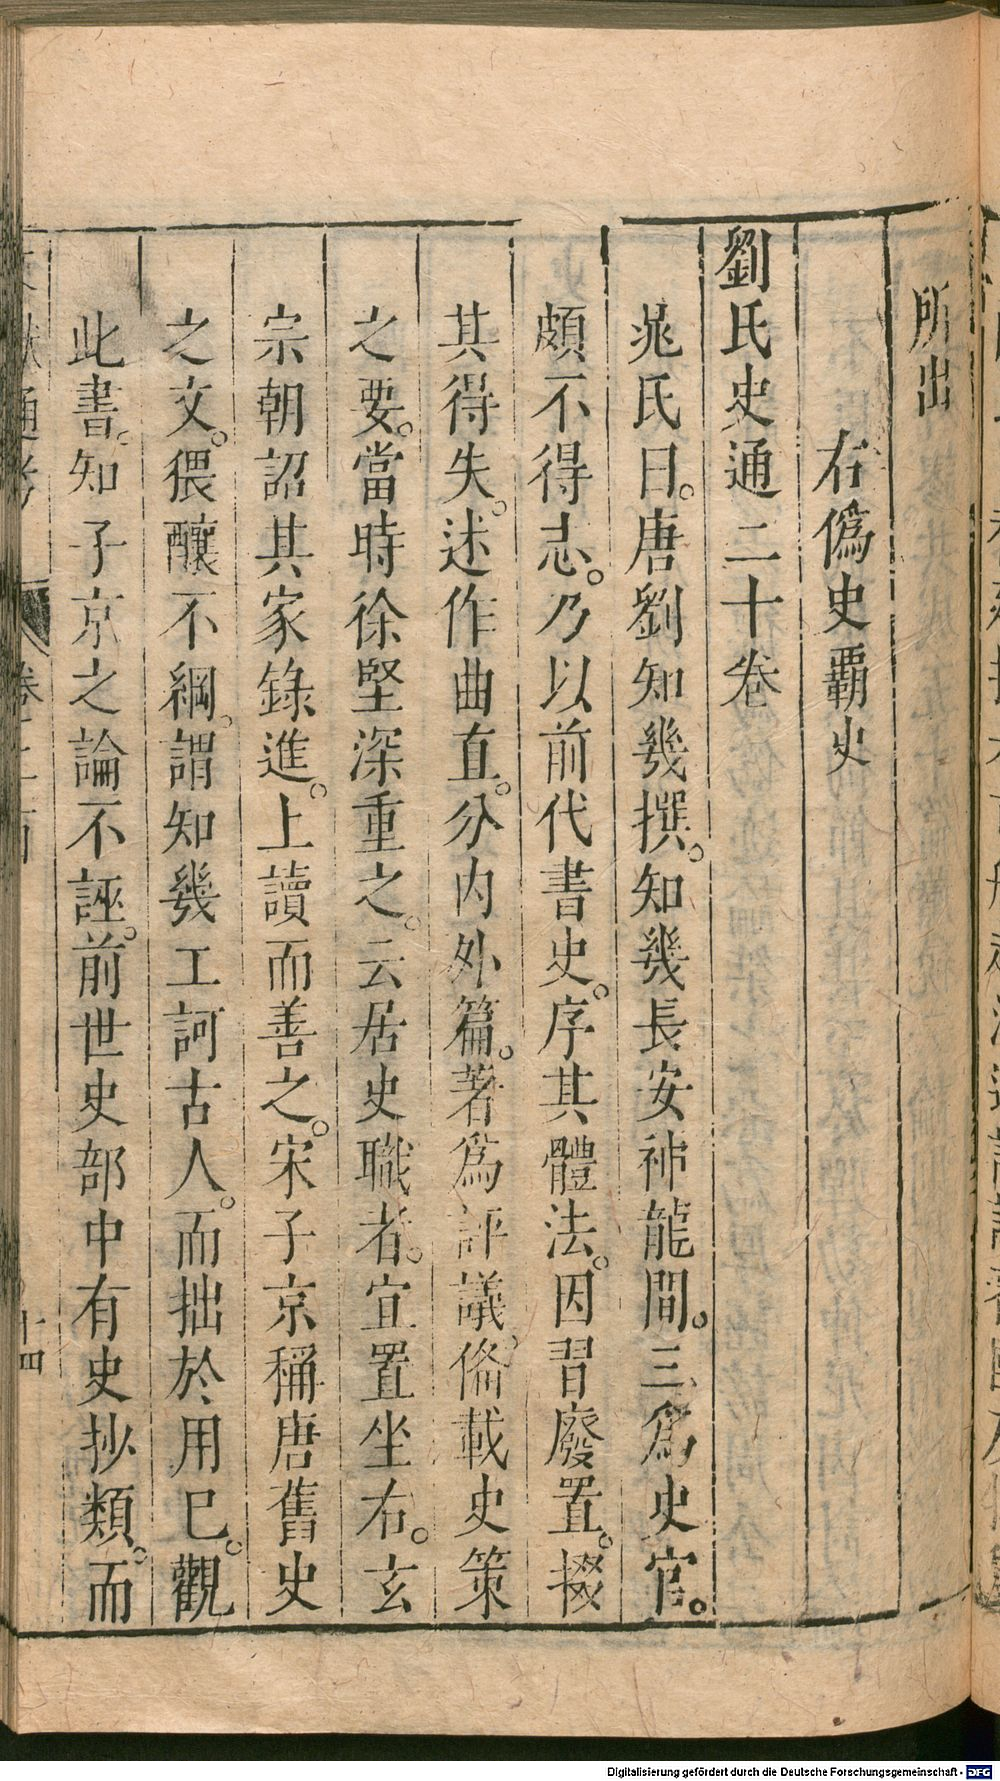 所出
右僞史覇史
劉氏史通二十卷
晁氏曰。唐劉知幾撰。知幾長安神龍間。三爲史官。
頗不得志。乃以前代書史。序其體法。因習廢置。掇
其得失。述作曲直。分内外篇。著爲評議。俻載史策
之要。當時徐堅深重之。云居史職者。宜置坐右。玄
宗朝詔其家錄進。上讀而善之。宋子京稱唐舊史
之文。猥釀不綱。謂知幾工訶古人。而拙於用已。觀
此書。知子京之論不誣。前世史部中有史抄類。而
十四
Digitalisierung gefördert durch die Deutsche Forschungsgemeinschaft - DFG